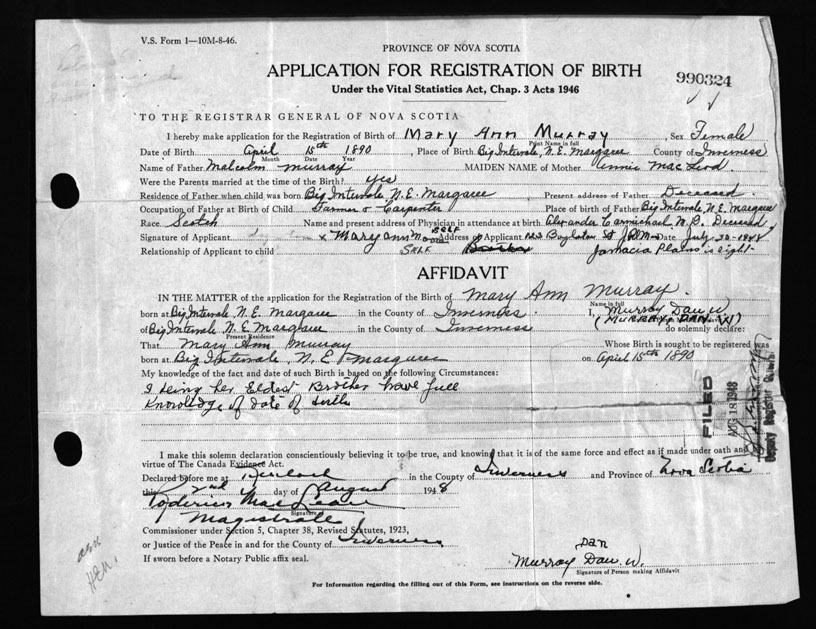 V.S. Form 1—10M-8-46.
PROVINCE OF NOVA SCOTIA
APPLICATION FOR REGISTRATION OF BIRTH
990324
Under the Vital Statistics Act, Chap. 3 Acts 1946
TO THE REGISTRAR GENERAL OF NOVA SCOTIA
I hereby make application for the Registration of Birth of Mary Ann Murray, Sex Female
Print Name in full
Date of Birth April 15th 1890, Place of Birth Big Intervale, N.E. Margaree County of Inverness
Month Date Year
Name of Father Malcolm Murray MAIDEN NAME of Mother Annie MacLeod
Were the Parents married at time of the Birth? yes
Residence of Father when child was born Big Intervale N.E. Margaree, Present address of Father Deceased
Occupation of Father at Birth of Child Farmer & Carpenter Place of birth of Father Big Intervale N.E. Margaree
Race Scotch Name and present address of Physician in attendance at birth Alexander Carmichael M.D. Deceased
Signature of Applicant x Mary Ann SELF Address of Applicant Boylston St Date July 1948
Relationship of Applicant to child SELF Jamacia Plains
AFFIDAVIT
IN THE MATTER of the application for the Registration of the Birth of Mary Ann Murray
Name in full
born at Big Intervale, N.E. Margaree in the County of Inverness. I, Murray Dan W
of Big Intervale N.E. Margaree in the County of Inverness (MURRAY, DAN. W) do solemnly declare:
Present Residence
That Mary Ann Murray Whose Birth is sought to be registered was
born at Big Intervale, N.E. Margaree on April 15th 1890
My knowledge of the fact and date of such Birth is based on the following Circumstances:
I being her Eldest Brother have full
Knowledge of date of birth
FILED
AUG 18 1948
Deputy Registrar General
I make this solemn declaration conscientiously believing it to be true, and knowing that it is of the same force and effect as if made under oath and by
virtue of The Canada Evidence Act.
Declared before me at in the County of Inverness and Province of Nova Scotia
this 2nd day of August 1948
Roderick MacLean
Signature
Magistrate
Commissioner under Section 5, Chapter 38, Revised Statutes, 1923,
or Justice of the Peace in and for the County of Inverness
If sworn before a Notary Public affix seal.
DAN
Murray Dan. W.
Signature of Person making Affidavit.
For Information regarding the filling out of this Form, see instructions on the reverse side.